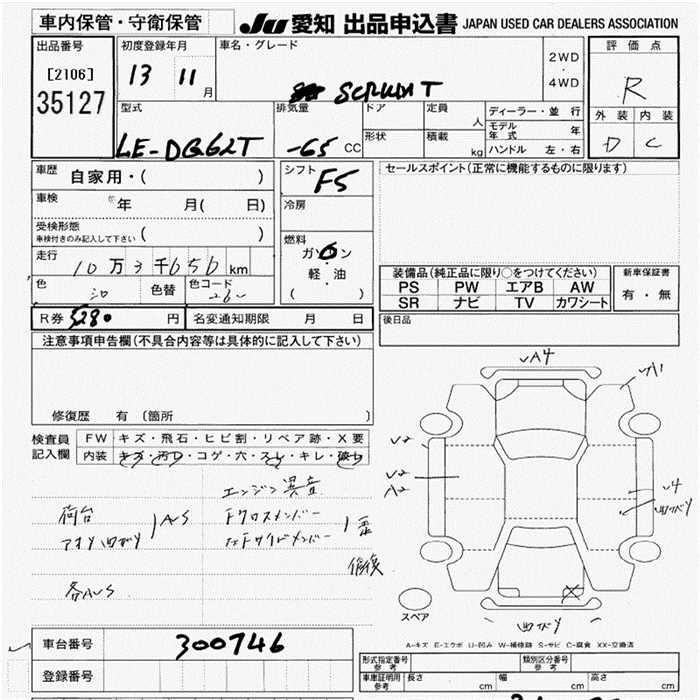 車内保管・守衛保管 JU 愛知 出品申込書 JAPAN USED CAR DEALERS ASSOCIATION
出品番号 初度登録年月 車名・グレード 評価点
[2106] 13 11 月 SCRUM T 2WD・4WD R
35127
型式 排気量 ドア 定員 人 ディーラー・並行 外装 内装
モデル年式 年
LE-DG62T -65 CC 形状 積載 kg ハンドル 左・右 D C
車歴 自家用・( ) シフト F5 セールスポイント(正常に機能するものに限ります)
車検 年 月( 日) 冷房
受検形態 ( )
車検付きのみ記入して下さい
燃料
走行 10万3千656km ガソリン
軽・油
( )
装備品(純正品に限り○をつけてください) 新車保証書
色 色替 色コード 26U PS PW エアB AW 有・無
SR ナビ TV カワシート
R券 5280 円 名変通知期限 月 日 後日品
注意事項申告欄(不具合内容等は具体的に記入して下さい)
修復歴 有 〔箇所 〕
検査員 FW キズ・飛石・ヒビ割・リペア跡・X要
記入欄 内装 キズ・汚レ・コゲ・穴・スレ・キレ・破レ
エンジン異音
荷台 AUS 下クロスメンバー
アオリ凹ガリ 左下サイドメンバー 歪
修復
各AUS
UA4
UA1
U2
U2
A2
U4
凹ガリ
凹ガリ
スペア
A-キズ E-エクボ U-凹み W-補修跡 S-サビ C-腐食 XX-交換済
車台番号 300746
登録番号
形式指定番号 参考 類別区分番号 参考
車庫証明用 参考 長さ cm 幅 cm 高さ cm